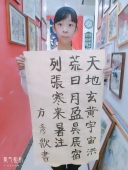 天地玄黃宇宙洪
荒日月盈昃辰宿
列張寒來暑往
方 書